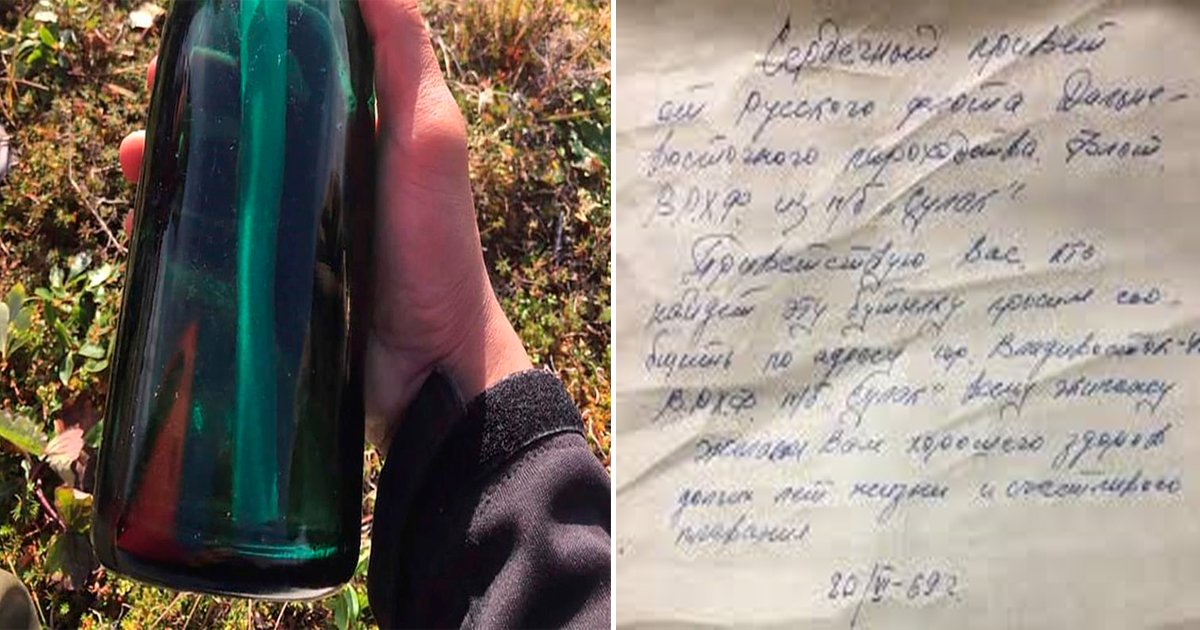 Сердечный привет
от Русского флота Дальне-
восточного пароходства.
ВРХФ из п/б "Сулак"
Приветствую вас кто
найдет эту бутылку просим соо-
бщить по адресу гор. Владивосток-
ВРХФ п/б "Сулак" всему экипажу
желаем Вам хорошего здоровья
долгих лет жизни и счастливого
плавания
20/VI-69 г.